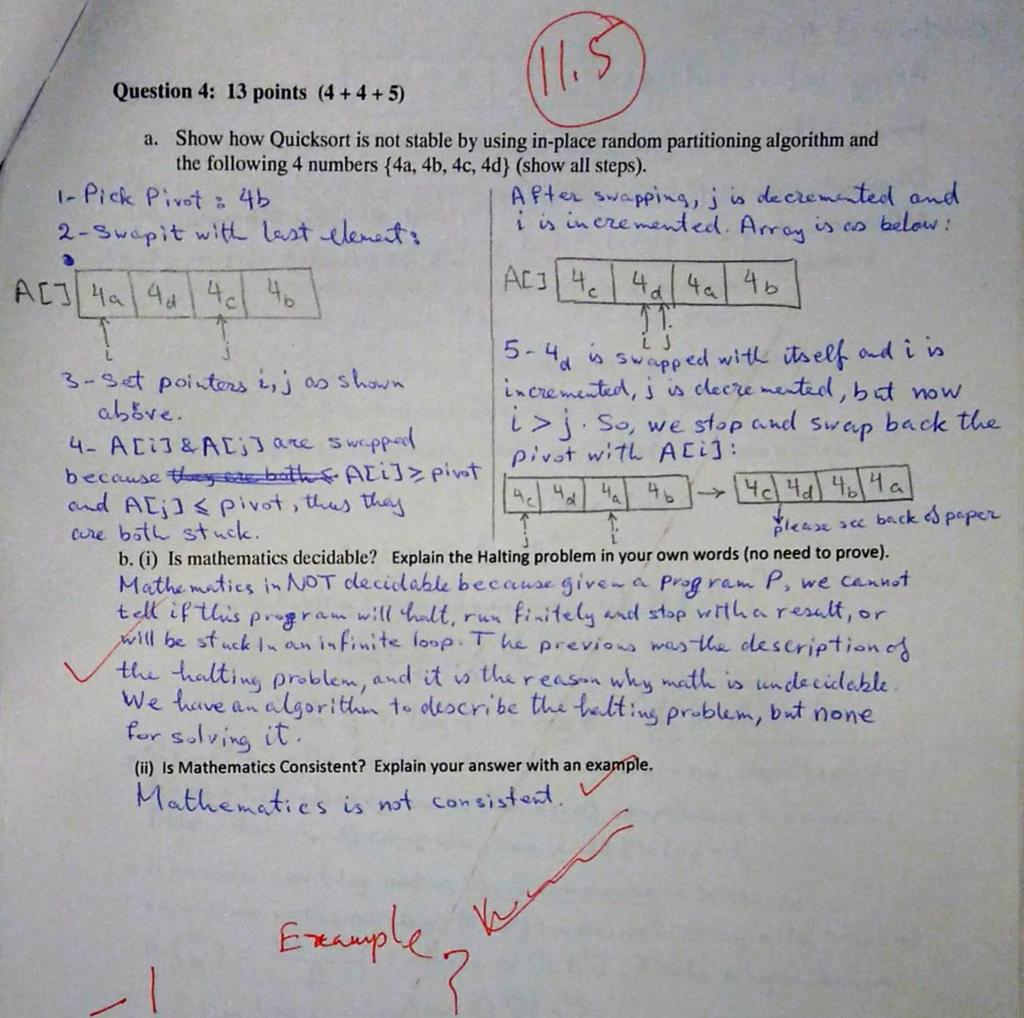 11.5
Question 4: 13 points (4 + 4 + 5)
a. Show how Quicksort is not stable by using in-place random partitioning algorithm and
the following 4 numbers {4a, 4b, 4c, 4d} (show all steps).
1- Pick Pivot: 4b
2- Swap it with last element:
A[] 4a 4d 4c 4b
i j
3- Set pointers i, j as shown
above.
4- A[i] & A[j] are swapped
because they are both ≤ A[i] ≥ pivot
and A[j] ≤ pivot, thus they
are both stuck.
After swapping, j is decremented and
i is incremented. Array is as below:
A[] 4c 4d 4a 4b
i j
5- 4d is swapped with itself and i is
incremented, j is decremented, but now
i > j. So, we stop and swap back the
pivot with A[i]:
4c 4d 4a 4b → 4c 4d 4b 4a
j i
please see back of paper
b. (i) Is mathematics decidable? Explain the Halting problem in your own words (no need to prove).
Mathematics in NOT decidable because given a program P, we cannot
tell if this program will halt, run finitely and stop with a result, or
will be stuck in an infinite loop. The previous was the description of
the halting problem, and it is the reason why math is undecidable.
We have an algorithm to describe the halting problem, but none
for solving it.
(ii) Is Mathematics Consistent? Explain your answer with an example.
Mathematics is not consistent.
Example ?
-1